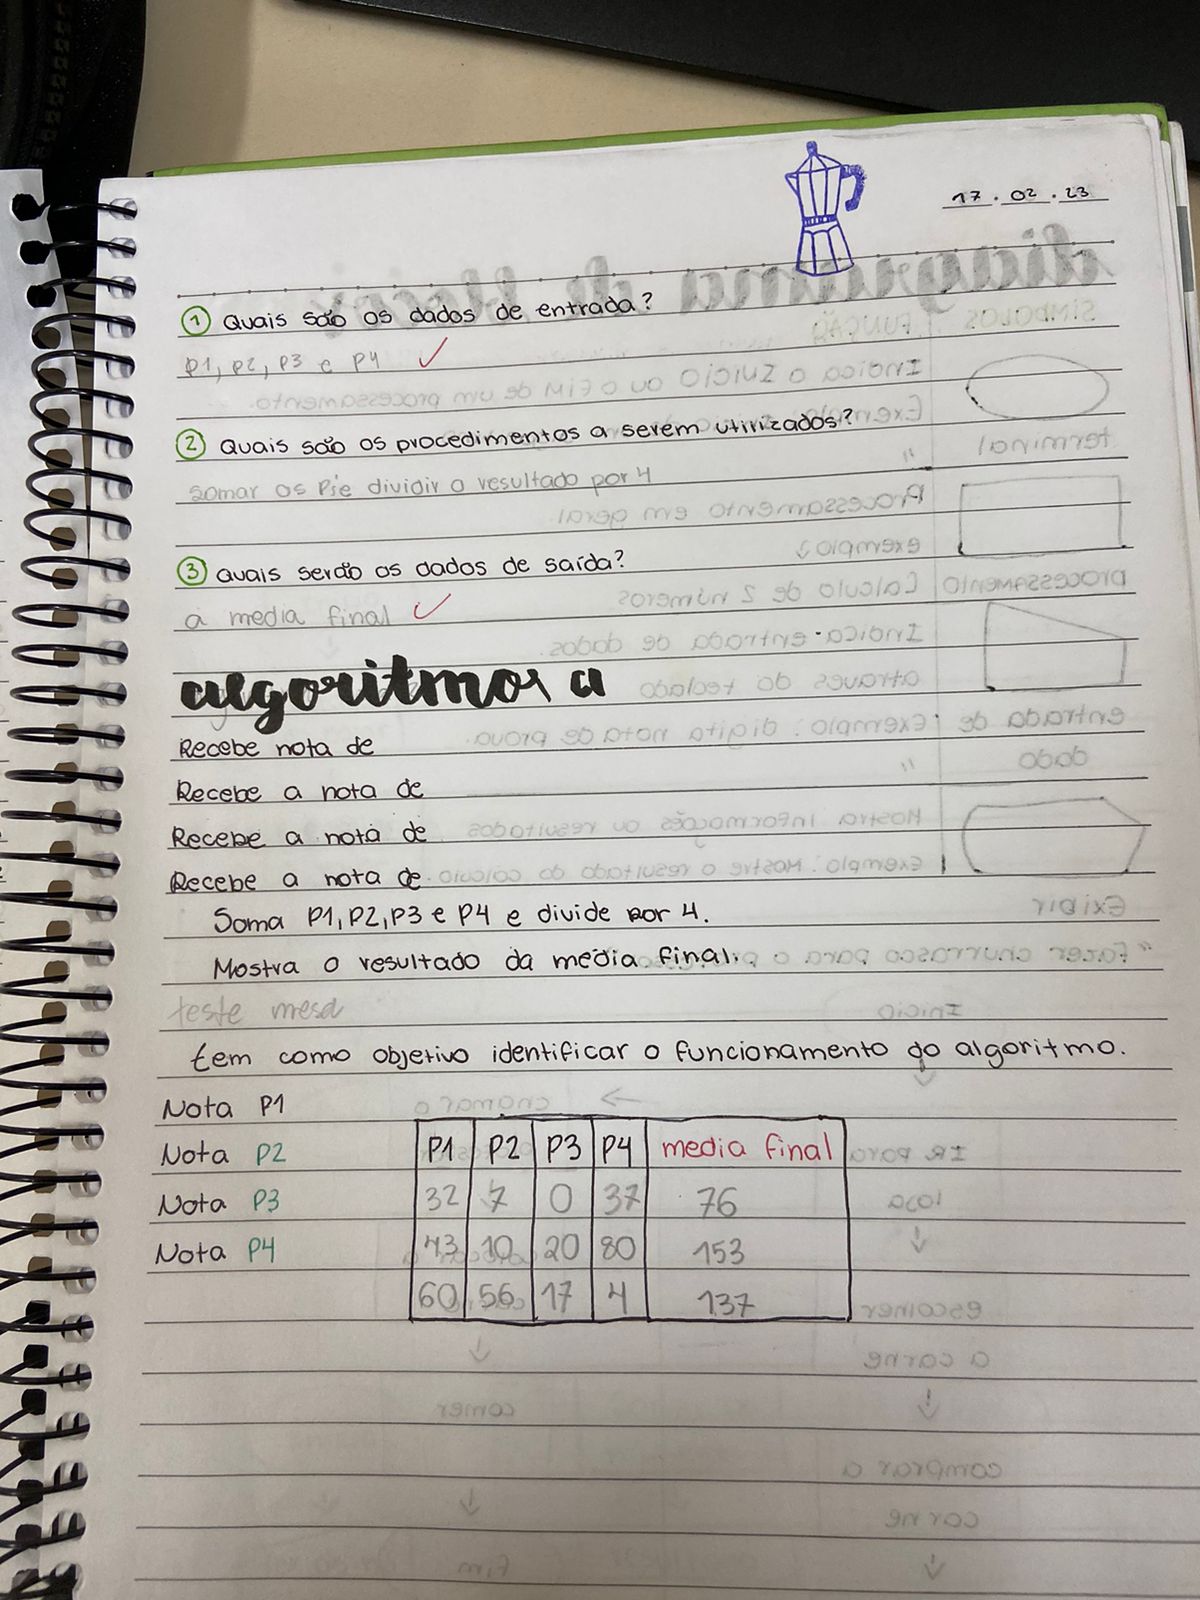 17 . 02 . 23
1 Quais são os dados de entrada?
P1, P2, P3 e P4
2 Quais são os procedimentos a serem utirizados?
somar os P's e dividir o resultado por 4
3 Quais serão os dados de saída?
a media final
algoritmos a
Recebe nota de
Recebe a nota de
Recebe a nota de
Recebe a nota de
Soma P1, P2, P3 e P4 e divide por 4.
Mostra o resultado da media final.
teste mesa
tem como objetivo identificar o funcionamento do algoritmo.
Nota P1
Nota P2
Nota P3
Nota P4
P1 P2 P3 P4 media final
32 7 0 37 76
43 10 20 80 153
60 56 17 4 137